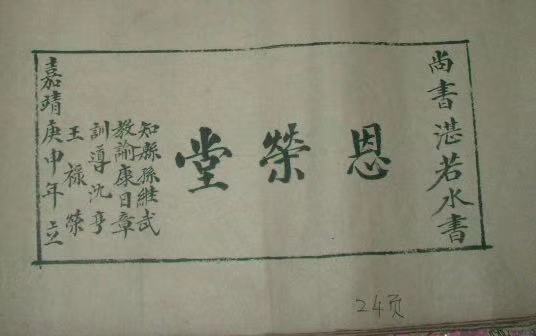 尚書湛若水書
恩榮堂
知縣孫維武
教諭康日章
訓導沈亨
王祿榮
嘉靖庚申年立
24页